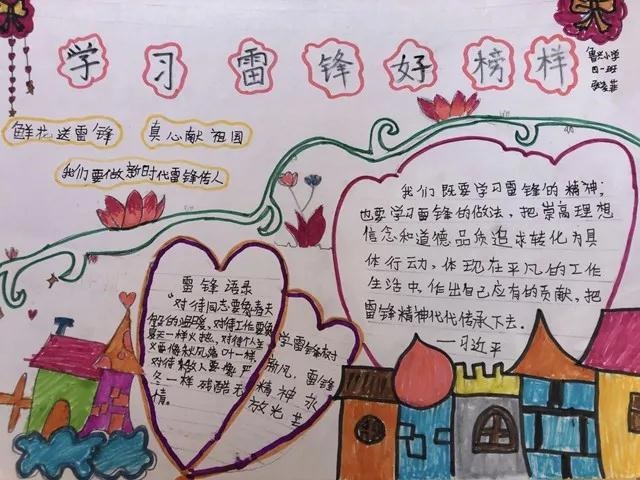 学习雷锋好榜样
鲁兴小学
四一班
鲜花送雷锋
真心献祖国
我们要做新时代雷锋传人
我们既要学习雷锋的精神;
也要学习雷锋的做法,把崇高理想
信念和道德品质追求转化为具
体行动,体现在平凡的工作
生活中,作出自己应有的贡献,把
雷锋精神代代传承下去。
——习近平
雷锋语录
"对待同志要象春天
般的温暖,对待工作要象
夏天一样火热,对待个人主
义要像秋风扫叶一样,
对待敌人要像严
冬一样残酷无
情。
学雷锋树
新风,雷锋
精神永
放光芒